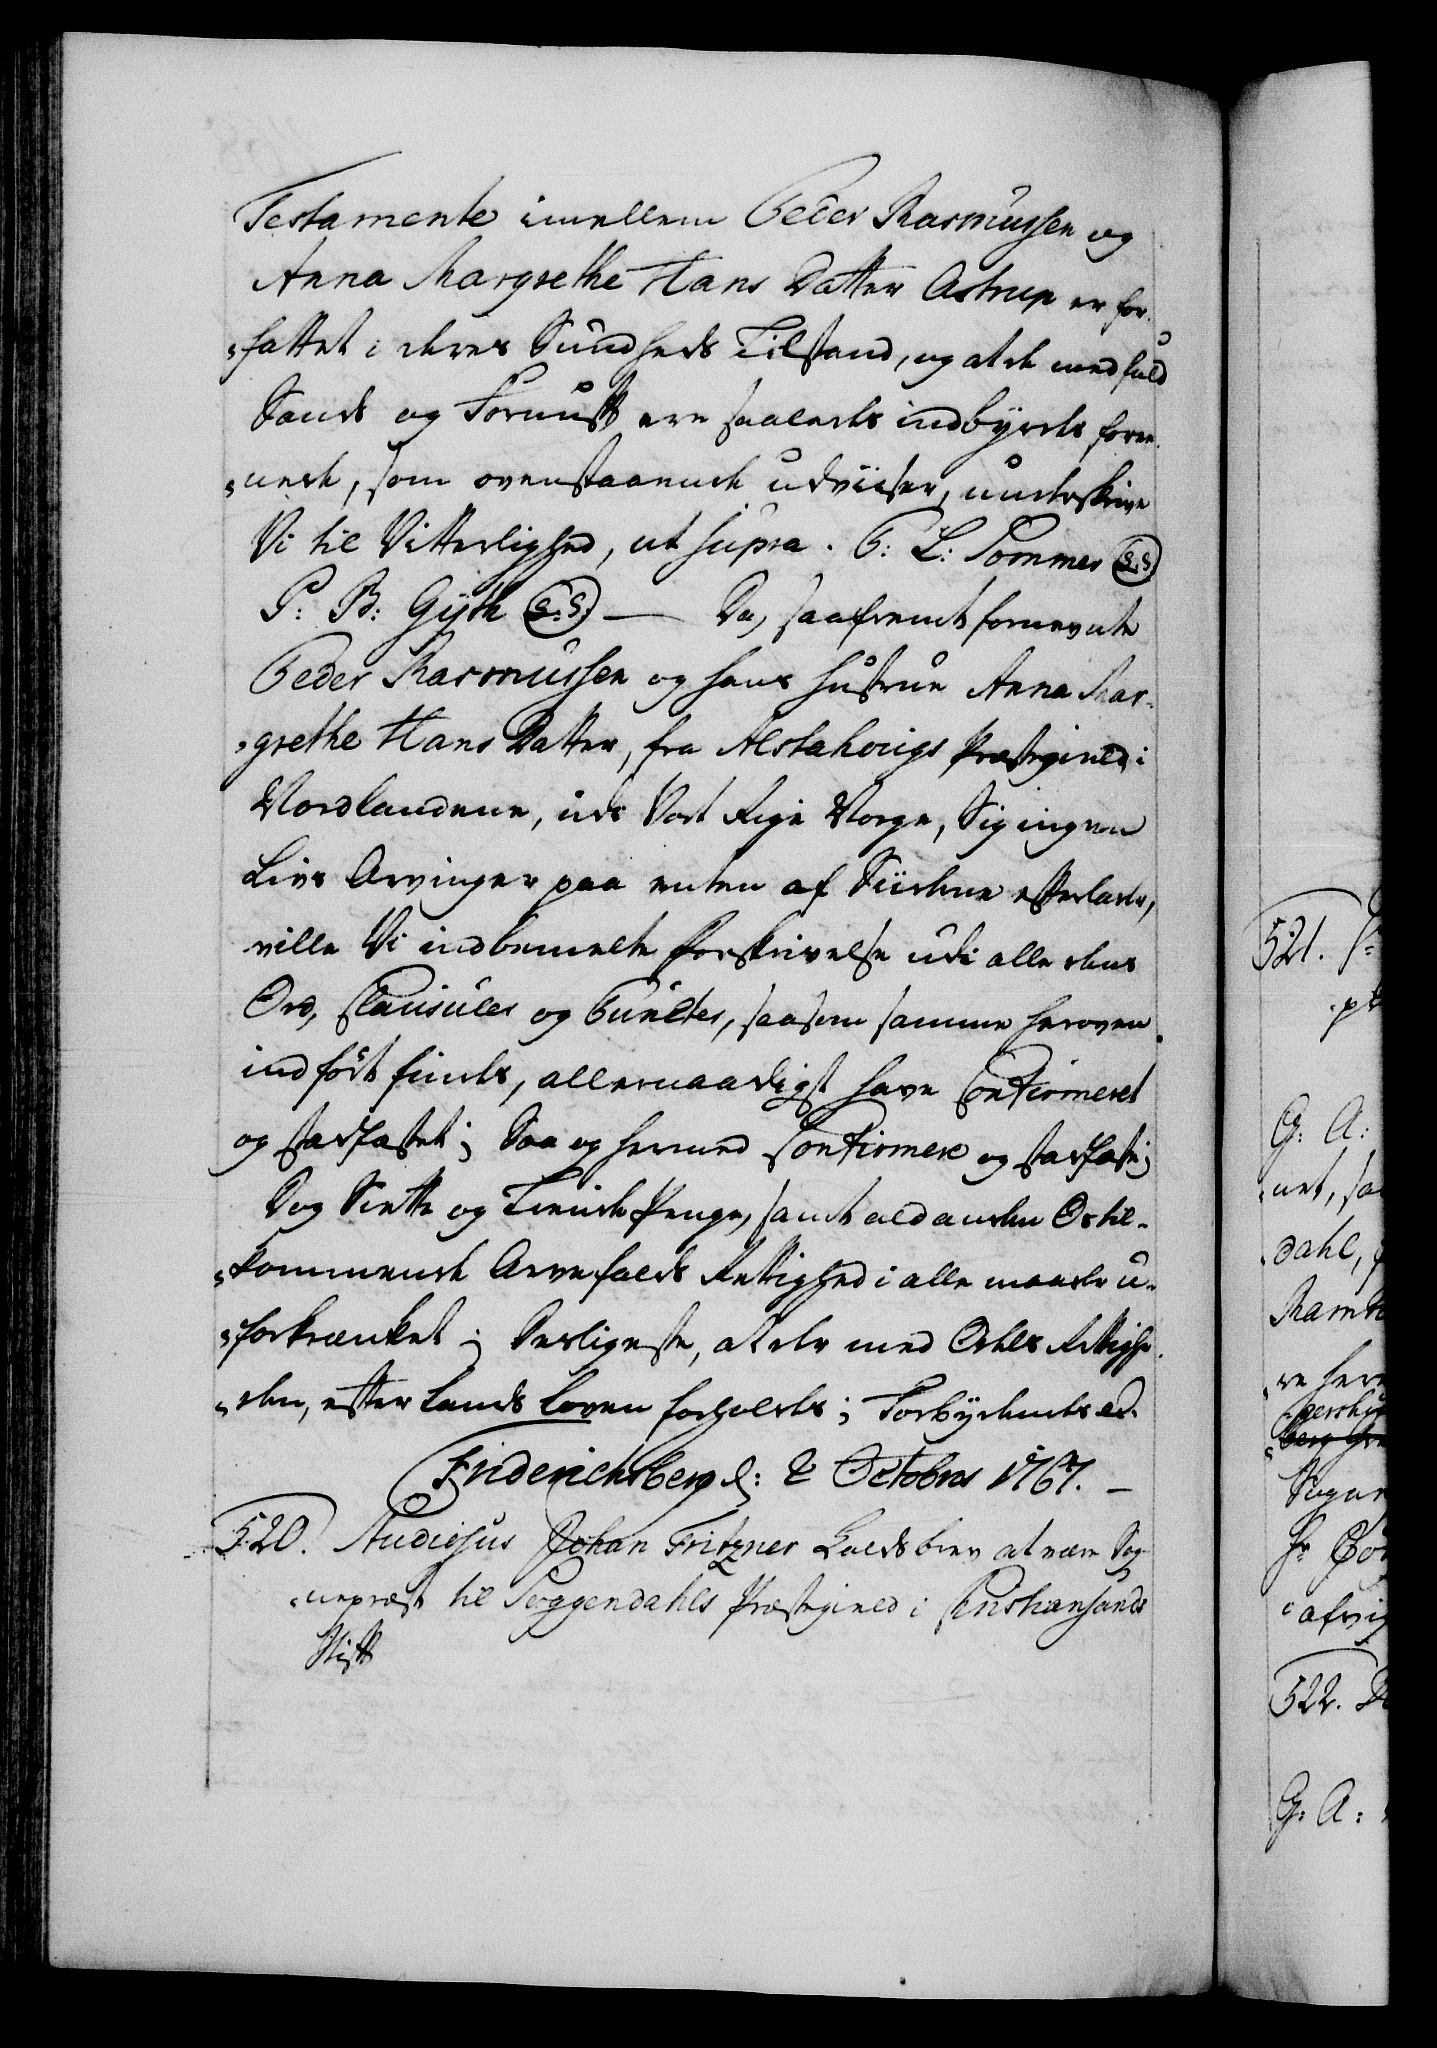 Testamente imellem Peder Rasmussen og
Anna Margrethe Hans Datter Astrup er for-
fattet i deres Sundheds Tilstand, og at de med fuld
Sands og Fornuft ere saaledes indbyrdes foree-
nede, som ovenstaaende udviiser, underskrive
Vi til Vitterlighed, ut supra. P: L: Pommer (S.S)
P: B: Gyth (S.S.) — Da, saafremt fornevnte
Peder Rasmussen og hans Hustrue Anna Mar-
grethe Hans Datter, fra Alstahougs Præstegield i
Nordlandene, udi Vort Rige Norge, Sig ingen
Livs Arvinger paa enten af Siiderne efterlade,
ville Vi indbemelte Forskrivelse udi alle dens
Ord, Clausuler og Puncter, saasom samme heroven
indført findes, allernaadigst have Confirmeret
og stadfæstet; Saa og hermed Confirmere og stadfæste;
Dog Siette og Tiende Penge, samt ald anden Os til-
kommende Arvefalds Rettighed i alle maader u-
forkrænket; Desligeste, at der med Odels Rettighe-
den, efter Lands Loven forholdes; Forbydendes ed.
Friderichsberg d: 2 Octobris 1767. —
520. Audiosus Johan Fritzner Kaldsbrev at være Sog-
nepræst til Soggendahls Præstegield i Christiansands
Stift
521.
G: A:
net, saa
dahl,
Ramd
re here
Sogne
Hr
afvig
522.
G: A: